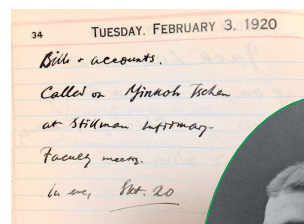 34 TUESDAY. FEBRUARY 3, 1920
Bills & accounts.
Called on Yinkoh Tschen
at Stillman Infirmary.
Faculty meetg.
In eve, 20